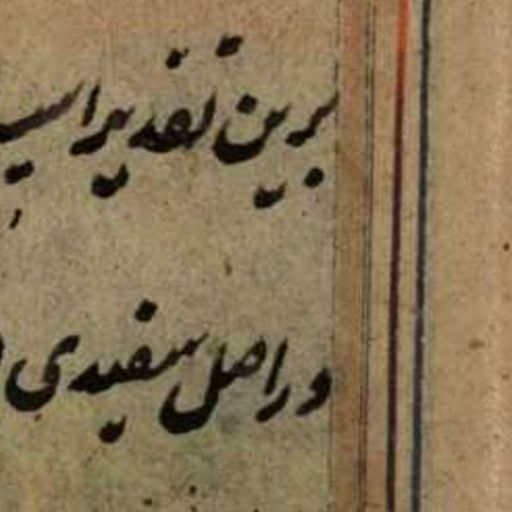 برین تقدیر اسپ
در اصل سفیدی